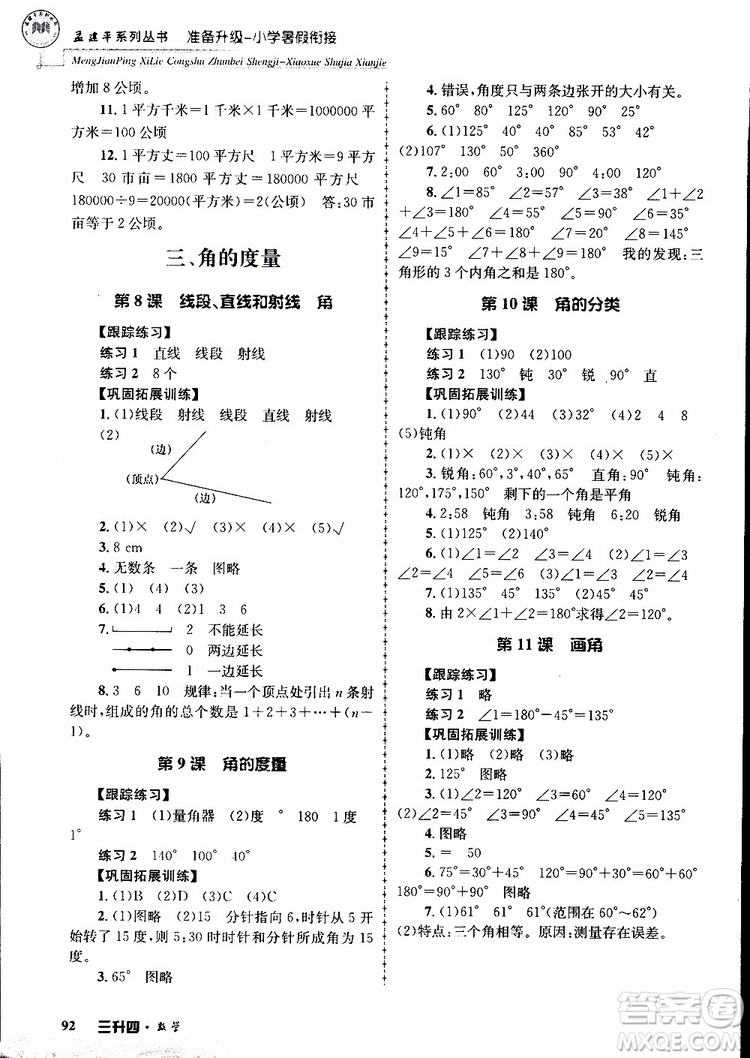 孟建平系列丛书 准备升级-小学暑假衔接
MengJianPing XiLie Congshu Zhunbei Shengji-Xiaoxue Shujia Xianjie
增加 8 公顷。
11. 1 平方千米=1 千米×1 千米=1000000 平
方米=100 公顷
12. 1 平方丈=100 平方尺 1 平方米=9 平方
尺 30 市亩=1800 平方丈=180000 平方尺
180000÷9=20000(平方米)=2(公顷) 答:30 市
亩等于 2 公顷。
三、角的度量
第 8 课 线段、直线和射线 角
【跟踪练习】
练习 1 直线 线段 射线
练习 2 8 个
【巩固拓展训练】
1. (1)线段 射线 线段 直线 射线
(2)
(边)
(顶点)
(边)
2. (1)× (2)√ (3)× (4)× (5)√
3. 8 cm
4. 无数条 一条 图略
5. (1) (4) (3)
6. (1)4 (2)1 3 6
7. 2 不能延长
0 两边延长
1 一边延长
8. 3 6 10 规律:当一个顶点处引出 n 条射
线时,组成的角的总个数是 1+2+3+…+(n-
1)。
第 9 课 角的度量
【跟踪练习】
练习 1 (1)量角器 (2)度 ° 180 1 度
1°
练习 2 140° 100° 40°
【巩固拓展训练】
1. (1)B (2)D (3)C (4)C
2. (1)图略 (2)15 分针指向 6,时针从 5 开
始转了 15 度,则 5:30 时时针和分针所成角为 15
度。
3. 65° 图略
92 三升四·数学
4. 错误,角度只与两条边张开的大小有关。
5. 60° 80° 125° 120° 90° 30°
6. (1)135° 45° 135° 45° 180° 180°
(2)107° 130° 63° 60° 360°
7. 2:00 60° 11:00 30°
8. ∠1=85° ∠2=50° ∠3=45°
∠1+∠2+∠3=180° ∠5=90° ∠6=35°
∠4+∠5+∠6=180° ∠7=45° ∠8=120°
∠9=15° ∠7+∠8+∠9=180° 我的发现:三
角形的 3 个内角之和是 180°。
第 10 课 角的分类
【跟踪练习】
练习 1 (1)90 (2)100
练习 2 130° 钝 30° 锐 90° 直
【巩固拓展训练】
1. (1)90° (2)44 (3)32° (4)2 4 8
(5)钝角
2. (1)× (2)× (3)× (4)× (5)×
3. 锐角:60°,3°,40°,65° 直角:90° 钝角:
120°,175°,150° 剩下的一个角是平角
4. 2:58 钝角 10:58 钝角 6:20 锐角
5. (1)125° (2)140°
6. (1)∠1=∠3 ∠2=∠4 (2)∠1=60°
∠2=120° ∠3=60° ∠4=120°
7. (1)135° 45° (2)135° 45°
8. 由 2×∠1+∠2=180°求得∠2=60°。
第 11 课 画角
【跟踪练习】
练习 1 略
练习 2 ∠1=180°-45°=135°
【巩固拓展训练】
1. (1)略 (2)略 (3)略
2. 125° 图略
3. (1)∠2=45° ∠3=135° ∠4=45°
(2)∠2=45° ∠3=45° ∠4=90°
4. 图略
5. = 50
6. 75°=30°+45° 120°=90°+30°
180°=90°+90° 图略
7. (1)61° 61° 61°(范围在 60°~62°)
(2)特点:三个角相等。原因:测量存在误差。